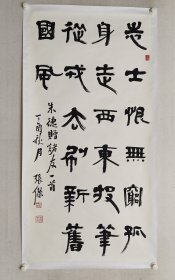 志士恨無窮孤
身走西東投筆
從戎去刷新舊
國風
朱德贈諸友一首
丁酉秋月 張